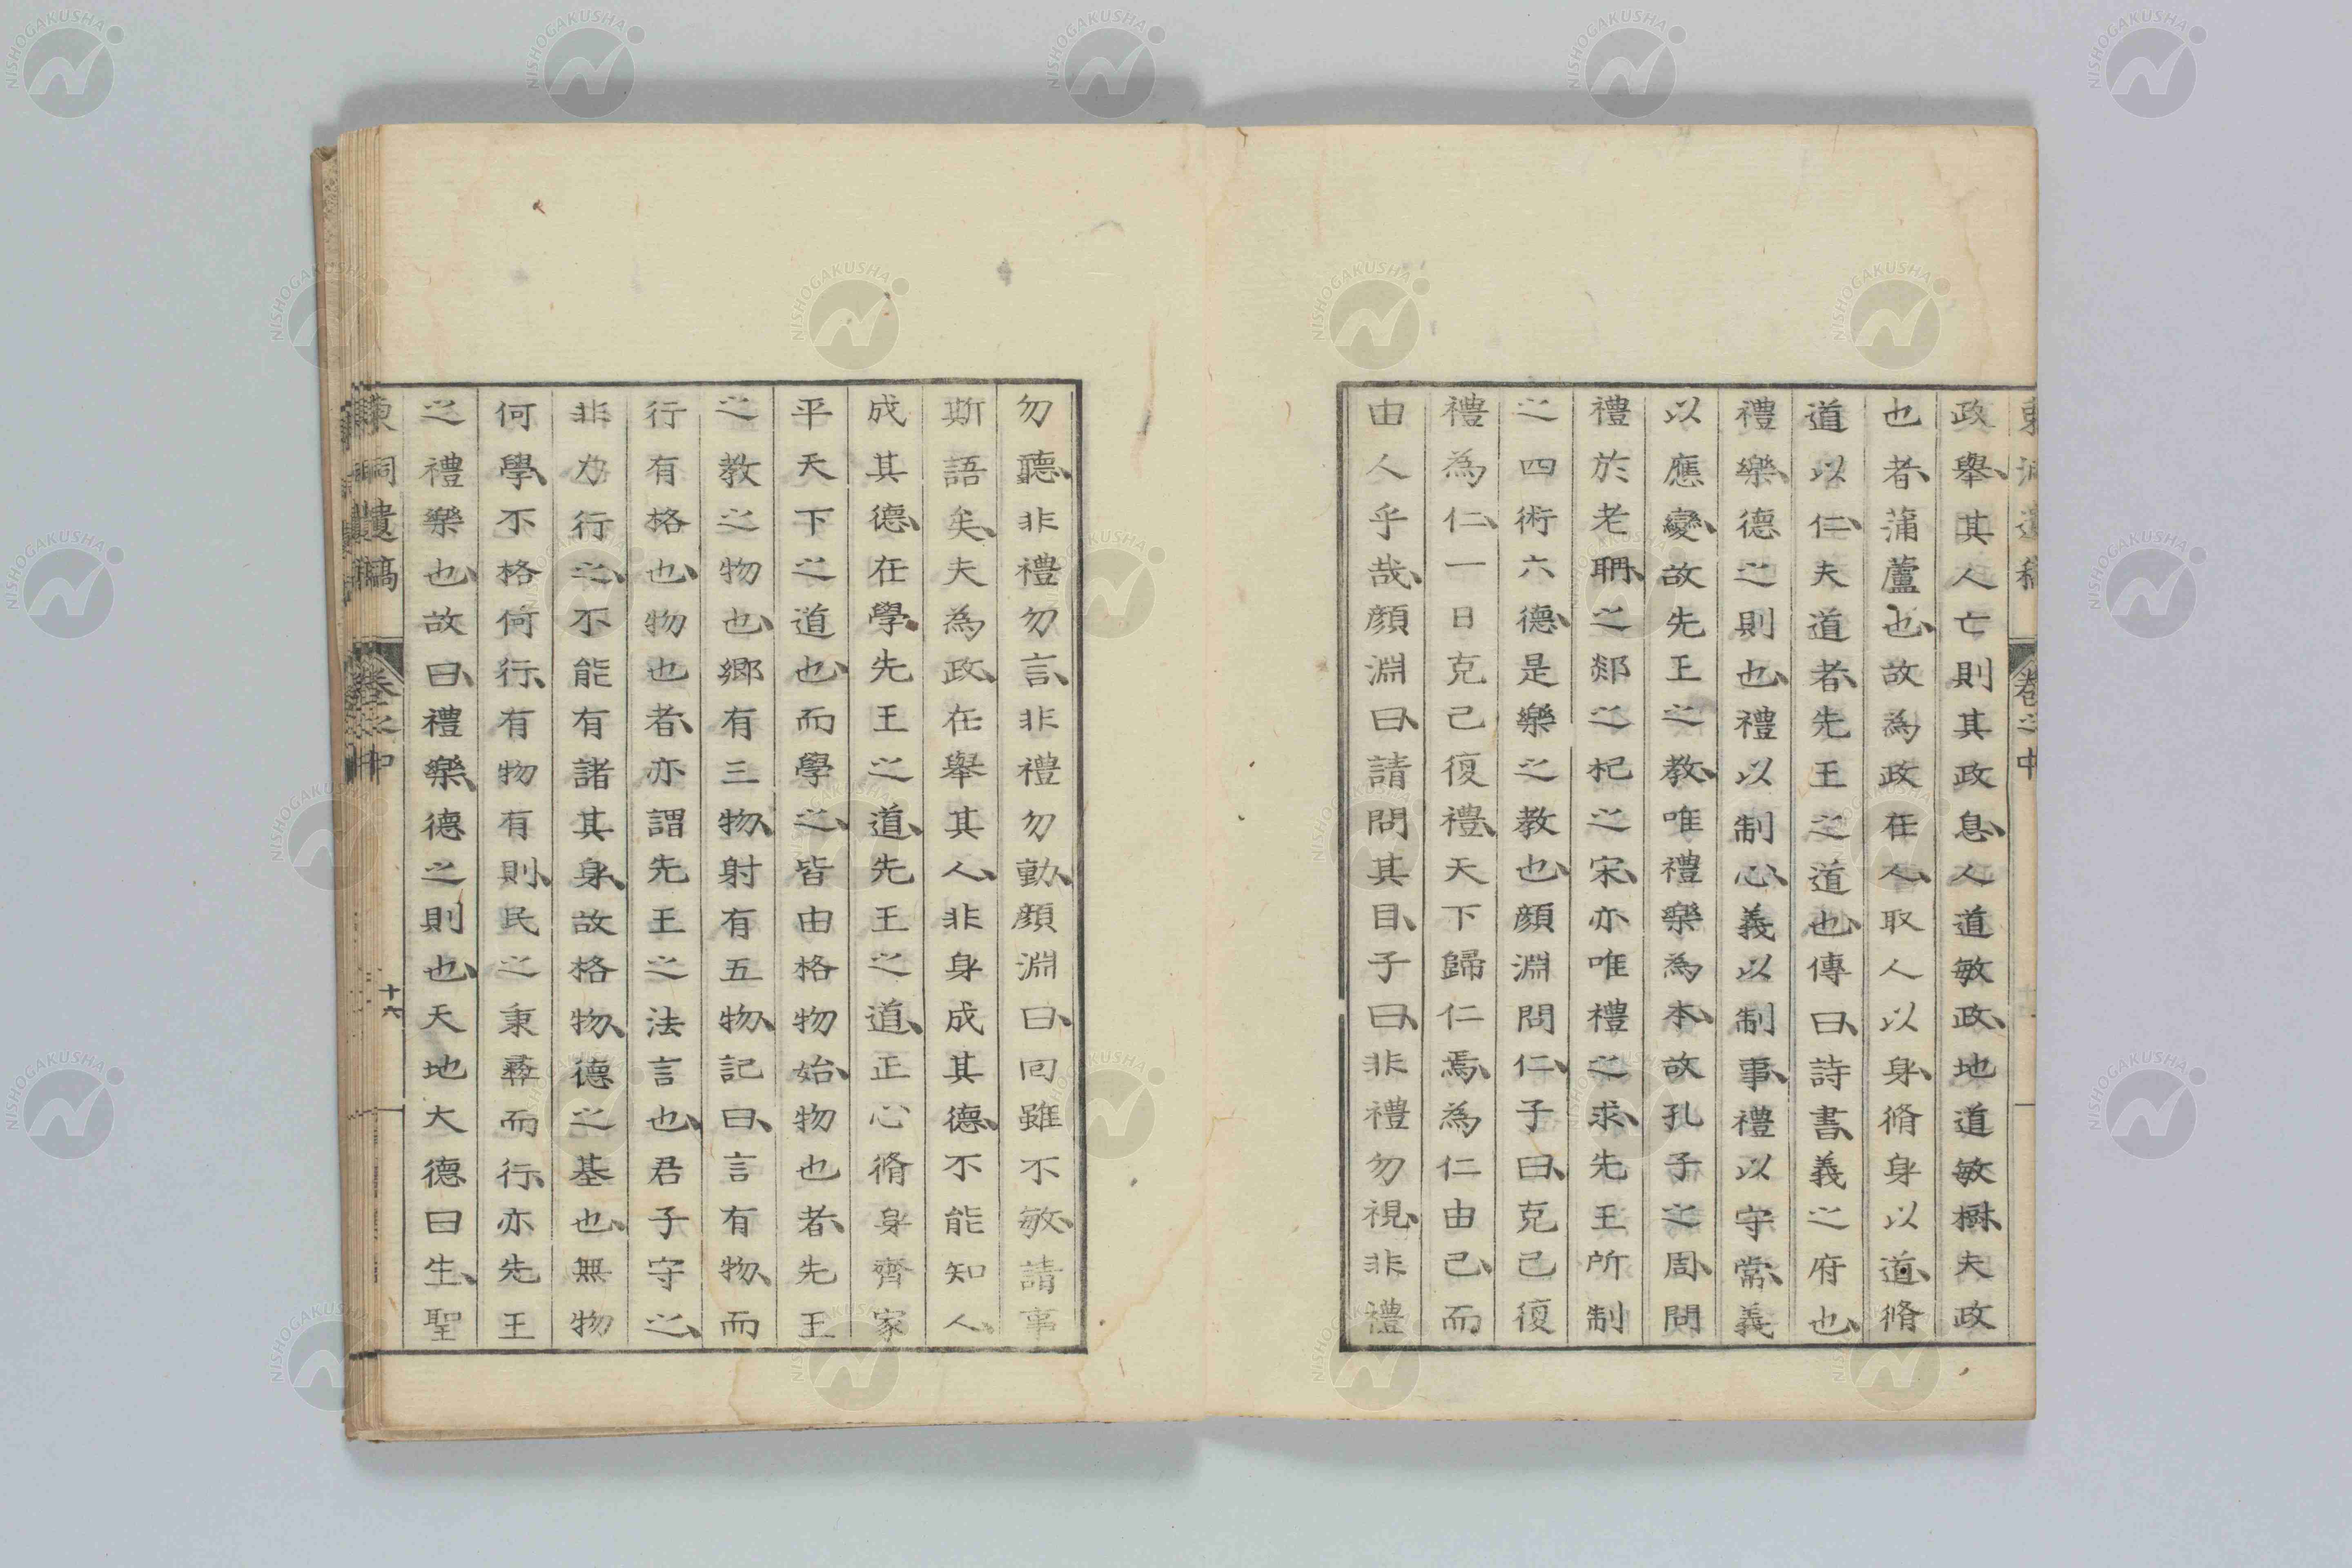 政舉、其人亡則其政息、人道敏政、地道敏樹、夫政
也者、蒲蘆也、故為政在人、取人以身、脩身以道、脩
道以仁、夫道者、先王之道也、傳曰、詩書、義之府也、
禮樂、德之則也、禮以制心、義以制事、禮以守常、義
以應變、故先王之教、唯禮樂為本、故孔子之周、問
禮於老聃、之郯之杞之宋、亦唯禮之求、先王所制
之四術六德、是樂之教也、顏淵問仁、子曰、克己復
禮為仁、一日克己復禮、天下歸仁焉、為仁由己、而
由人乎哉、顏淵曰、請問其目、子曰、非禮勿視、非禮
勿聽、非禮勿言、非禮勿動、顏淵曰、回雖不敏、請事
斯語矣、夫為政、在舉其人、非身成其德、不能知人、
成其德、在學先王之道、先王之道、正心脩身齊家
平天下之道也、而學之、皆由格物始、物也者、先王
之教之物也、鄉有三物、射有五物、記曰、言有物、而
行有格也、物也者、亦謂先王之法言也、君子守之、
非力行之、不能有諸其身、故格物、德之基也、無物
何學、不格何行、有物有則、民之秉彝而行、亦先王
之禮樂也、故曰、禮樂、德之則也、天地大德曰生、聖
遺稿 卷之中 十六
NISHOGAKUSHA